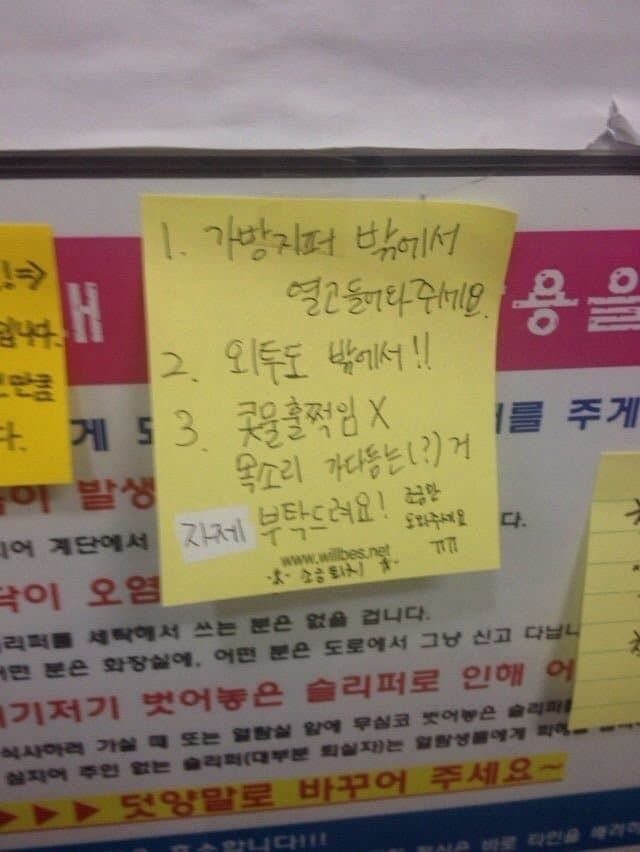 1. 가방지퍼 밖에서
열고들어와주세요.
2. 외투도 밖에서!!
3. 콧물훌쩍임 X
목소리 가다듬는(?)거
자제 부탁드려요!
조금만
도와주세요
ㅠㅠ
www.willbes.net
소음퇴치
!⇒
입니다.
만큼
다.
용을
게
를 주게
이 발생
계단에서
다.
이 오염
리퍼를 세탁해서 쓰는 분은 없을 겁니다.
떤 분은 화장실에, 어떤 분은 도로에서 그냥 신고 다닙니
기저기 벗어놓은 슬리퍼로 인해 어
식사하러 가실 때 또는 열람실 앞에 무심코 벗어놓은 슬리퍼
심지어 주인 없는 슬리퍼(대부분 퇴실자)는 열람생들에게 피해
▶▶▶ 덧양말로 바꾸어 주세요~
니다!!!
바로 타인을 배려하